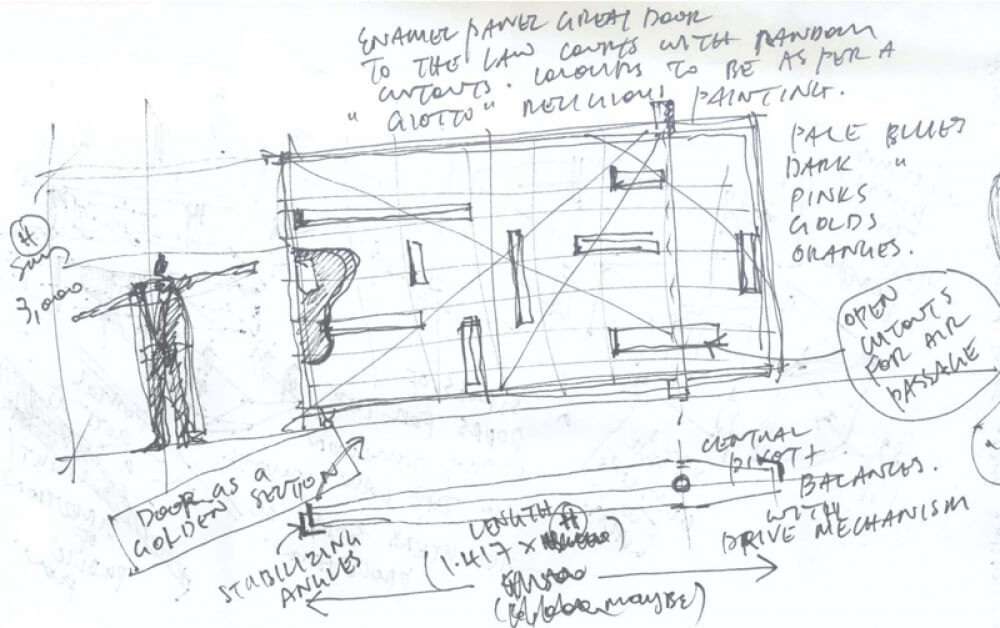 ENAMEL PANEL GREAT DOOR
TO THE LAW COURTS WITH RANDOM
CUTOUTS. COLOURS TO BE AS PER A
"GIOTTO" RELIGIOUS PAINTING.
PALE BLUES
DARK "
PINKS
GOLDS
ORANGES.
H
3,000
OPEN
CUTOUTS
FOR AIR
PASSAGE
CENTRAL
PIVOT +
BALANCES.
WITH
DRIVE MECHANISM
DOOR AS A
GOLDEN SECTION
STABILIZING
ANGLES
LENGTH
(1.417 x H)
MAYBE)